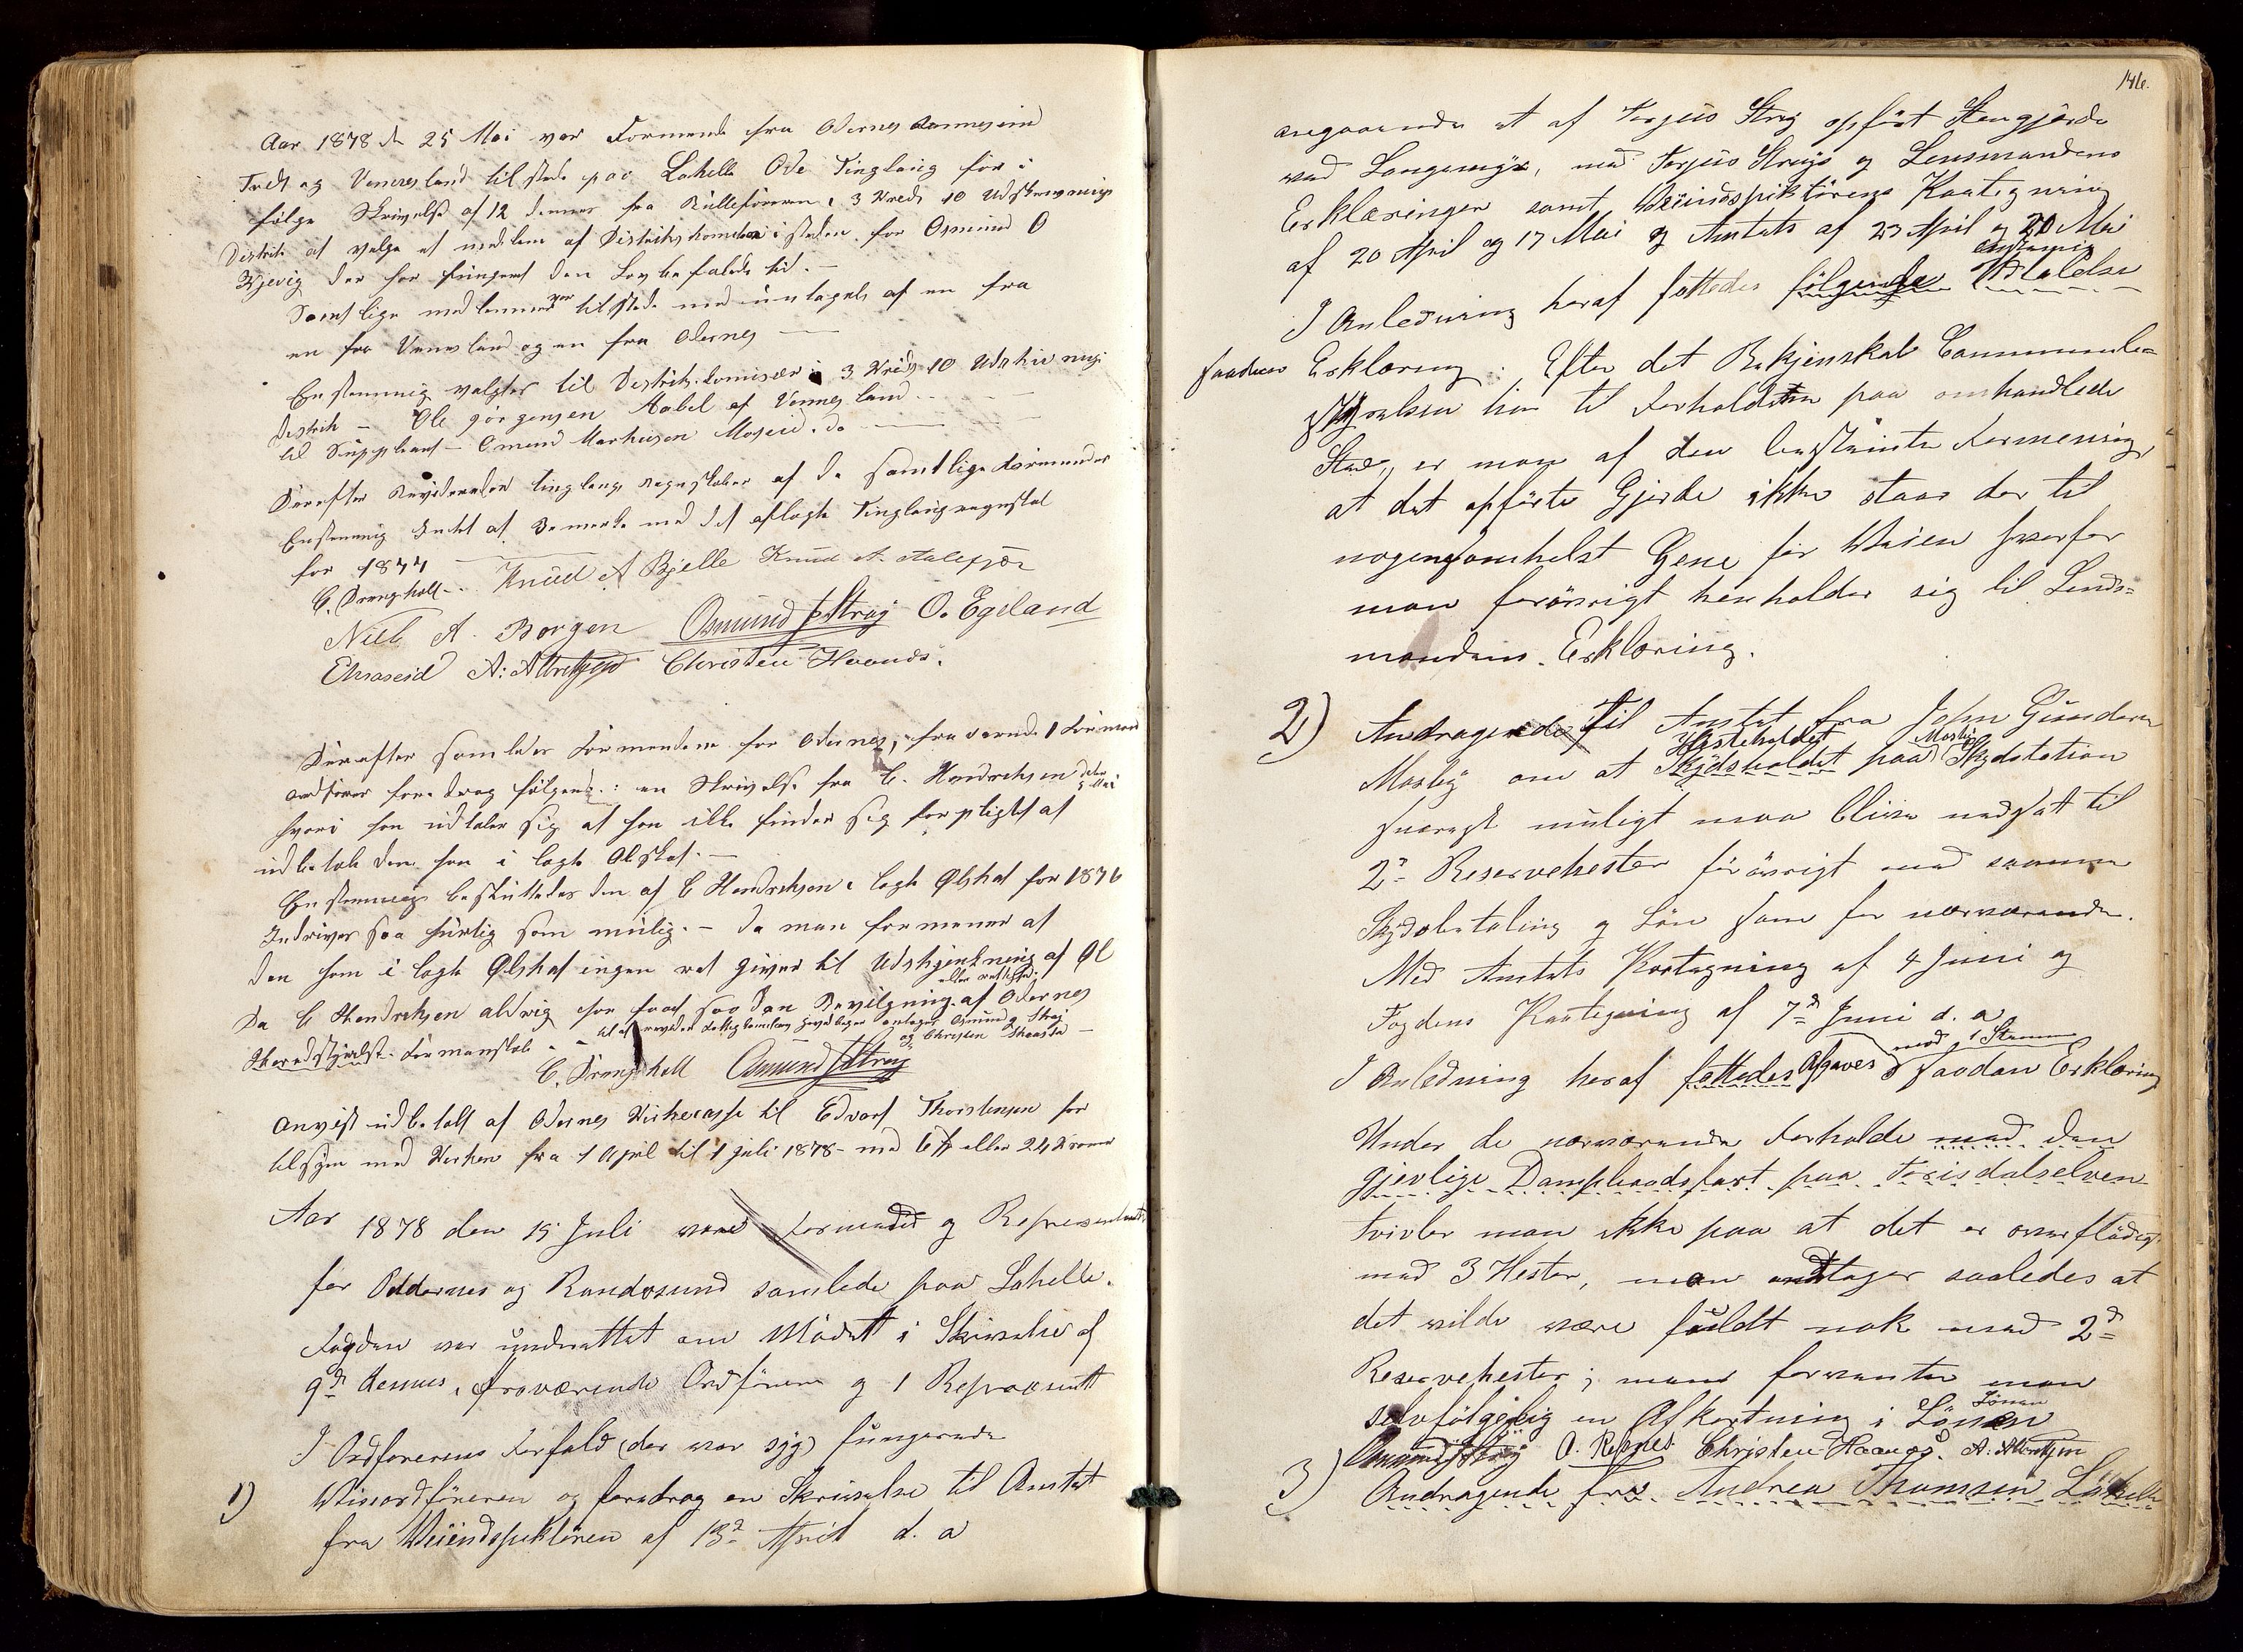 Aar 1878 den 25 Mai var Formænd fra Odernes
Tvedt og Vennesland tilstede paa Lahelle Ode Tinglaug for i
følge Skrivelse af 12 dennes fra Rulleføreren i 3 Kreds 10 Udskrivnings
Distrikt at vælge et medlem af Distriktskomisionen i steden for Osmund O
Kjevig der har fungeret den Lovbefalede tid. —
Samtlige medlemmer var tilstede med undtagelse af en fra
en fra Vennesland og en fra Odernes —
Enstemmig valgtes til Distrikts Komisær i 3 Kreds 10 Udskrivnings
Distrikt — Ole Jørgensen Aabel af Vennesland
til Suppleant — Omund Markusen Moseid. do —
Derefter Revideredes tinglaugs regnskaber af de samtlige Formænder
Enstemmig Intet at Bemerke med det aflagte Tinglaugregnskab
for 1877
C. Drangsholt - Knud A Bjelle Knud A. Aalefjær
Niels A. Borgen Osmund Strøy O. Egeland
A: Albretsen Christen Haanes.
Derefter samledes Formændene for Odernes, fraværende 1 Formand
Ordfører foredrog følgende: en Skrivelse fra C. Hendrichsen dater 5 Mai
hvori han udtaler sig at han ikke finder sig forpligtet at
udbetale den han i lagte Ølskat. —
Enstemmig besluttedes den af C Hendrichsen i lagte Ølskat for 1876
Indrives saa hurtig som mulig. — da man formener at
den ham i lagte Ølskat ingen ret giver til Udskjenkning af Øl
eller rettighed
Da C Hendrichsen aldrig har faaet saadan Bevilgning af Odernes
Heredstyrelse. Formanskab. - til at revidere Fattigkomisionens antages Osmund Strøy
og Christen Haanes —
C. Drangsholt Osmund Strøy
Anvist udbetalt af Odernes Kirkecasse til Edvart Thorstensen for
tilsyn med Kirken fra 1 April til 1 Juli 1878 - med 6 Spd eller 24 Kroner
Aar 1878 den 15 Juli vare Formænd og Repræsentanter
for Oddernes og Randøsund samlede paa Lahelle.
Fogden var underrettet om Mødet i Skrivelse af
9d dennes, fraværende Ordføreren og 1 Repræsentt
I Ordførerens Forfald (der var syg) fungerede
1) Viceordføreren og foredrog en Skrivelse til Amtet
fra Veiindspektøren af 13d April d. a
146.
angaaende et af Terjus Strøy opført Stengjærde
ved Langemyr, med Terjus Strøys og Lensmandens
Erklæringer samt Veiindspektørens Paategning
af 20 April og 17 Mai og Amtets af 23 April og 20 Mai
enstemig
I Anledning heraf fattedes følgende Udtalelse
saadan Erklæring: Efter det Bekjenskab Communebe=
styrelsen har til Forholdene paa omhandlede
Sted, er man af den bestemte Formening,
at det opførte Gjerde ikke staar der til
nogensomhelst Gene for Veien hvorfor
man forøvrigt henholder sig til Lends=
mandens Erklæring.
2) Andragende til Amtet fra John Gundersen
Hesteholdet Mosby
Mosby om at Skydsholdet paa Skydstation
snarest muligt maa blive nedsat til
2de Reservehester forøvrigt med samme
Skydsbetaling og Løn som for nærværende.
Med Amtets Paategning af 4 Juni og
Fogdens Paategning af 7d Juni d. a
med 1 Stemme
I Anledning heraf fattedes Afgaves saadan Erklæring
Under de nærværende Forholde med den
gjevlige Dampbaadsfart paa Torisdalselven
tvivler man ikke paa at det er overflødigt
med 3 Hester, man antager saaledes at
det vilde være fuldt nok med 2de
Reservehester; men forventer man
selvfølgelig en Afkortning i Lønen
Lönen
Osmund Strøy O. Repnes Christen Haanes. A. Albretsen
3) Andragende fra Andrea Thomsen Lahelle